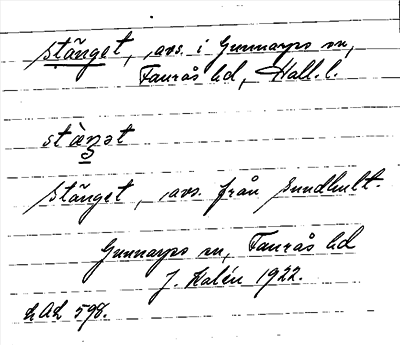 stånget, avs. i Gunnarps sn,
Faurås hd, Hall. l.
stàŋ̣ət
Stånget, avs. från Sundhult.
Gunnarps sn, Faurås hd
J. Kalén 1922.
LAL 598.